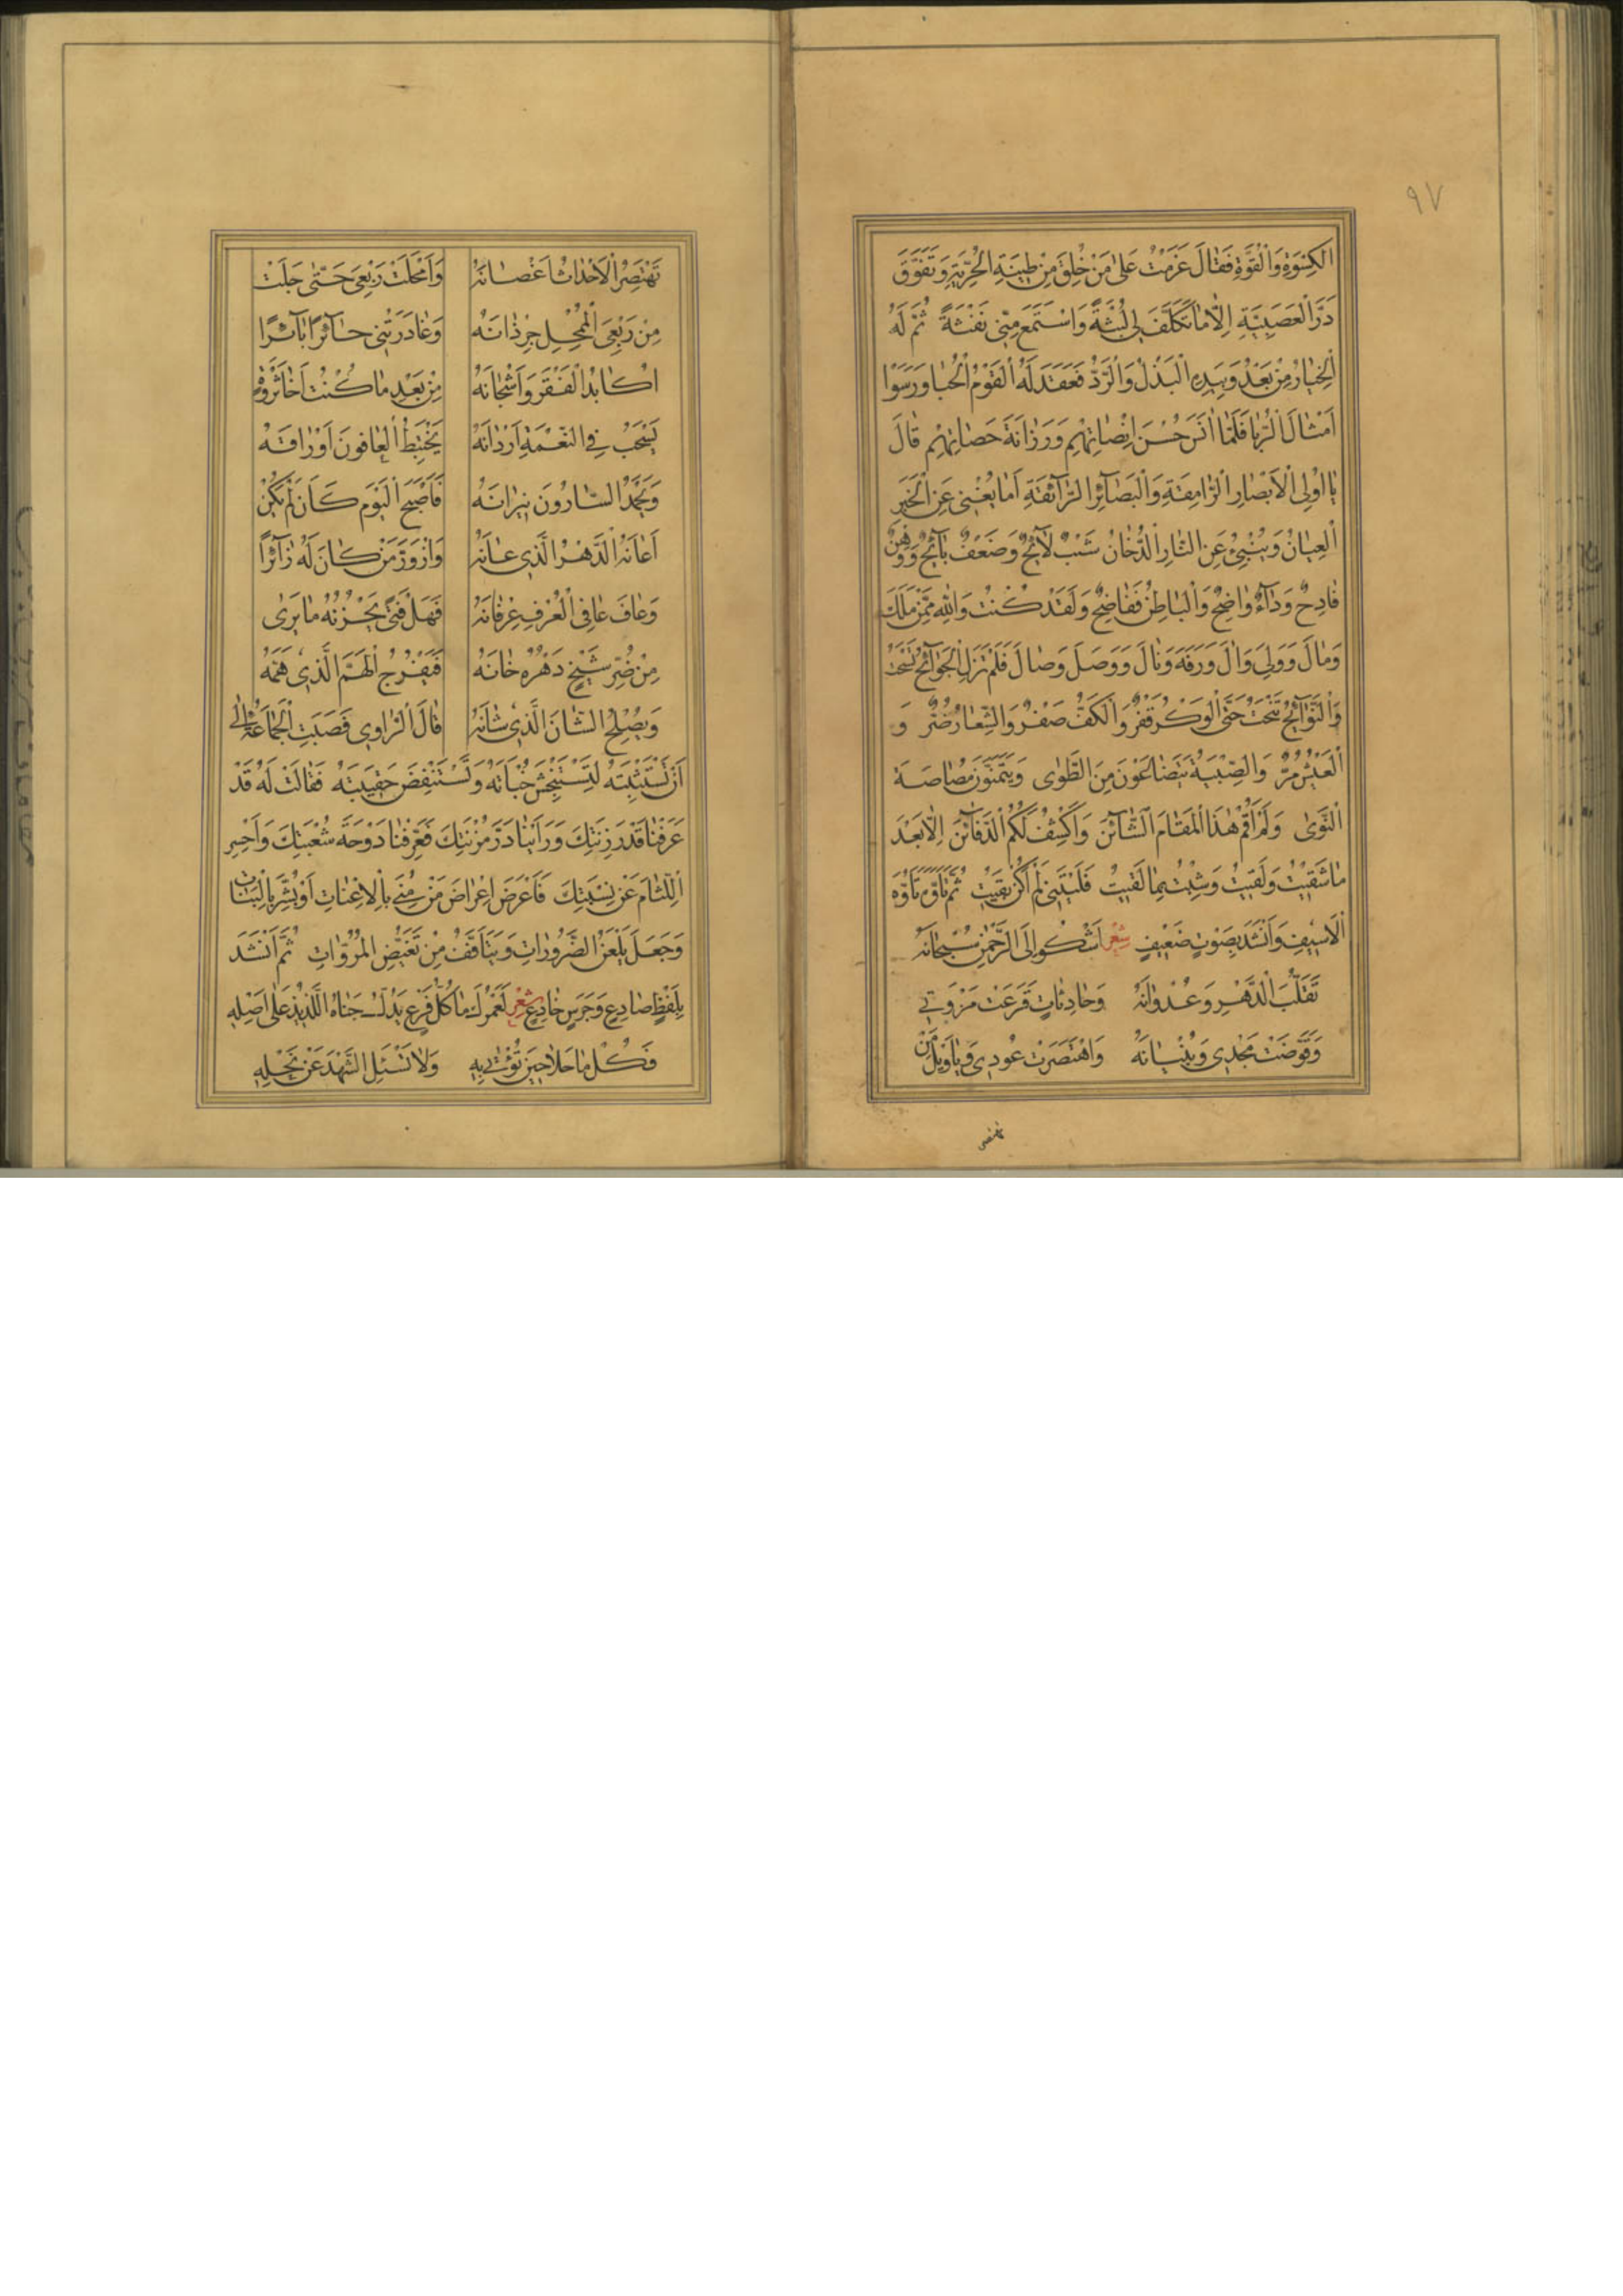 ٩٧
اَلْكِسْوَةِ وَالْقُوَّةِ فَقَالَ عَزَمْتُ عَلىٰ مَنْ خُلِقَ مِنْ طِينَةِ الْحُرِّيَّةِ وَتَفَوَّقَ
دَرَّ الْعَصَبِيَّةِ اِلَّا مَا تَكَلَّفَ لِي لُبْثَةً وَاسْتَمَعَ مِنّي نَفْثَةً ثُمَّ لَهُ
اَلْخِيَارُ مِنْ بَعْدُ وَبِيَدِهِ الْبَذْلُ وَالرَّدُّ فَعَقَدَ لَهُ الْقَوْمُ الْحُبَا وَرَسَوْا
اَمْثَالَ الرُّبَا فَلَمَّا اٰنَسَ حُسْنَ اِنْصَاتِهِمْ وَرَزَانَةَ حَصَاتِهِمْ قَالَ
يَا اُولِي الْاَبْصَارِ الرَّامِقَةِ وَالْبَصَآئِرِ الرَّآئِقَةِ اَمَا يُغْنِي عَنِ الْخَبَرِ
اَلْعِيَانُ وَيُنْبِئُ عَنِ النَّارِ الدُّخَانُ شَيْبٌ لَآئِحٌ وَضَعْفٌ بَآئِحٌ وَوَهْنٌ
فَادِحٌ وَدَآءٌ وَاضِحٌ وَالْبَاطِنُ فَفَاضِحٌ وَلَقَدْ كُنْتُ وَاللهِ مِمَّنْ مَلَكَ
وَمَالَ وَوَلِيَ وَاٰلَ وَرَفَدَ وَنَالَ وَوَصَلَ وَصَالَ فَلَمْ تَزَلِ الْجَوَآئِحُ تَسْحَتُ
وَالنَّوَآئِبُ تَنْحَتُ حَتَّى الْوَكْرُ قَفْرٌ وَالْكَفُّ صَفْرٌ وَالشِّعَارُ ضُرٌّ وَ
اَلْعَيْشُ مُرٌّ وَالصِّبْيَةُ يَتَضَاغَوْنَ مِنَ الطَّوٰى وَيَتَمَنَّوْنَ مُصَاصَةَ
اَلنَّوٰى وَلَمْ اَقُمْ هٰذَا الْمَقَامَ الشَّآئِنَ وَاَكْشِفْ لَكُمُ الدَّفَآئِنَ اِلَّا بَعْدَ
مَا شَقِيْتُ وَلَقِيْتُ وَشِبْتُ مِمَّا لَقِيْتُ فَلَيْتَنِي لَمْ اَكُنْ بَقِيْتُ ثُمَّ تَاَوَّهَ تَاَوُّهَ
اَلْاَسِيفِ وَاَنْشَدَ بِصَوْتٍ ضَعِيفٍ شعر اَشْكُوا اِلَى الرَّحْمٰنِ سُبْحَانَهُ
تَقَلُّبَ الدَّهْرِ وَعُدْوَانَهُ وَحَادِثَاتٍ قَرَعَتْ مَرْوَتِي
وَقَوَّضَتْ مَجْدِي وَبُنْيَانَهُ وَاهْتَصَرَتْ عُودِي وَيَا وَيْلَ مَنْ
تهتصر
تَهْتَصِرُ الْاَحْدَاثُ اَغْصَانَهُ وَاَمْحَلَتْ رَبْعِيَ حَتّٰى جَلَتْ
مِنْ رَبْعِيَ الْمُمْحِلِ جِرْذَانَهُ وَغَادَرَتْنِي حَآئِرًا بَآئِرًا
اُكَابِدُ الْفَقْرَ وَاَشْجَانَهُ مِنْ بَعْدِ مَا كُنْتُ اَخَا ثَرْوَةٍ
يَسْحَبُ فِي النَّعْمَةِ اَرْدَانَهُ يَخْتَبِطُ الْعَافُونَ اَوْرَاقَهُ
وَيَحْمَدُ السَّارُونَ نِيرَانَهُ فَاَصْبَحَ الْيَوْمَ كَاَنْ لَمْ يَكُنْ
اَعَانَهُ الدَّهْرُ الَّذِي عَانَهُ وَازْوَرَّ مَنْ كَانَ لَهُ زَآئِرًا
وَعَافَ عَافِي الْعُرْفِ عِرْفَانَهُ فَهَلْ فَتًى يَحْزُنُهُ مَا يَرٰى
مِنْ ضُرِّ شَيْخٍ دَهْرُهُ خَانَهُ فَيَفْرُجَ الْهَمَّ الَّذِي هَمَّهُ
وَيُصْلِحَ الشَّانَ الَّذِي شَانَهُ قَالَ الرَّاوِي فَصَبَتِ الْجَمَاعَةُ اِلٰى
اَنْ تَسْتَثْبِتَهُ لِتَسْتَنْجِشَ خُبْاَتَهُ وَتَسْتَنْفِضَ حَقِيبَتَهُ فَقَالَتْ لَهُ قَدْ
عَرَفْنَا قَدْرَ زِنَتِكَ وَرَاَيْنَا دَرَّ مُزْنَتِكَ فَعَرِّفْنَا دَوْحَةَ شُعْبَتِكَ وَاحْسِرِ
اَللِّثَامَ عَنْ نِسْبَتِكَ فَاَعْرَضَ اِعْرَاضَ مَنْ مُنِيَ بِالْاِعْنَاتِ اَوْ بُشِّرَ بِالْبَنَاتِ
وَجَعَلَ يَلْعَنُ الضَّرُورَاتِ وَيَتَاَفَّفُ مِنْ تَغَيُّضِ الْمُرُوَّاتِ ثُمَّ اَنْشَدَ
بِلَفْظٍ صَادِعٍ وَجَرْسٍ خَادِعٍ شعر لَعَمْرُكَ مَا كُلُّ فَرْعٍ يَدُلُّ جَنَاهُ اللَّذِيذُ عَلٰى اَصْلِهِ
فَكُلْ مَا حَلَا حِينَ تُؤْتٰى بِهِ وَلَا تَسْئَلِ الشَّهْدَ عَنْ نَحْلِهِ